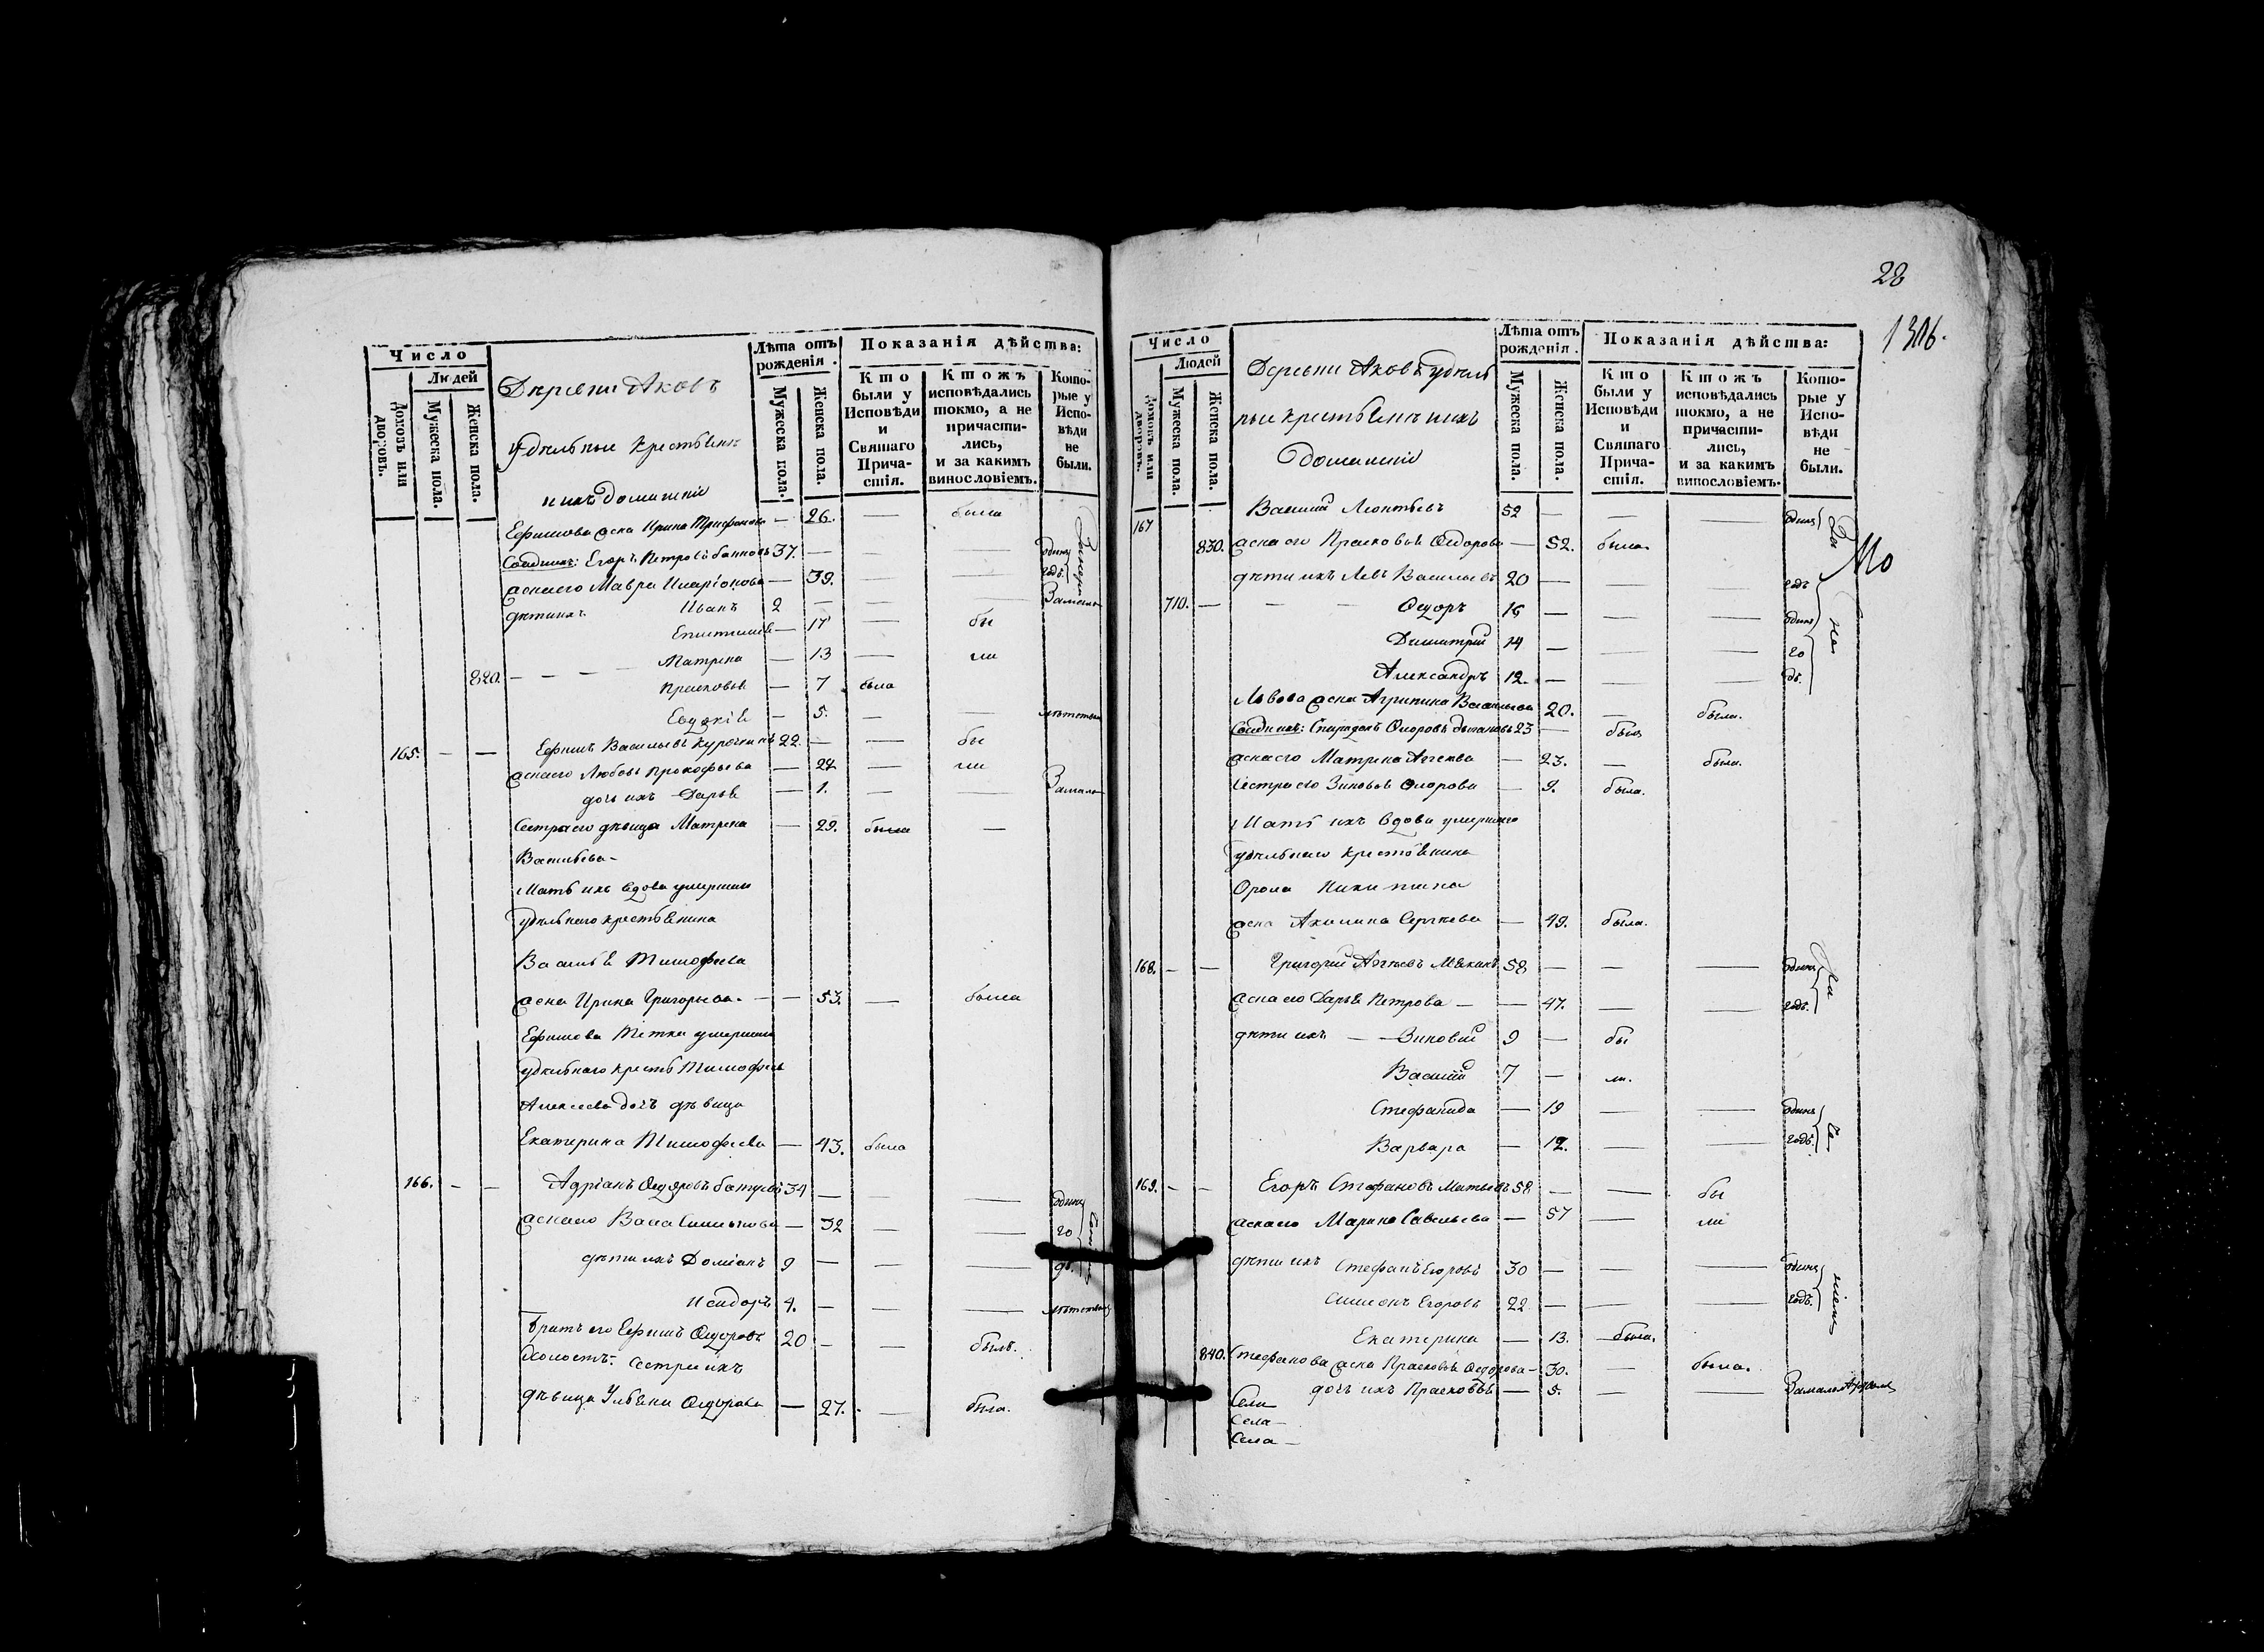 Число
Людей
домовъ или дворовъ.
Мужеска пола.
Женска пола.
Деревни Аковъ
удѣльные крестьяне
и ихъ домашнія
Лѣта отъ рожденія.
Мужеска пола.
Женска пола.
Показанія дѣйства:
Кто были у Исповѣди и Святаго Причастія.
Ктожъ исповѣдались токмо, а не причастились, и за какимъ винословіемъ.
Которые у Исповѣди не были.
Ефимова жена Ирина Трифонова — 26. — была
Соединих: Егоръ Петровъ 37. — — — одинъ
жена его Мавра Иларіонова — 39. — — годъ.
дѣти ихъ Иванъ 2 — — — Замало
Епистимія — 17 — бы
Матрена — 13 — ли
820. — — — Прасковья — 7 была
Евдокія — 5. — — лѣтствомъ
165. — — Ефимъ Васильевъ Курочкинъ 22. — — бы
жена его Любовь Прокофьева — 24 — ли
дочь ихъ Дарья — 1. — — Замало
Сестра его дѣвица Матрена — 29. была —
Васильева
Мать ихъ вдова умершаго
удѣльнаго крестьянина
Василья Тимофеева
жена Ирина Григорьева. — — 53. — была
Ефимова Тетка умершаго
удѣльнаго кресть Тимофея
Алексеева дочь дѣвица
Екатерина Тимофеева — 43. была
166. — — Адріанъ Ѳедоровъ 34 — — — одинъ
жена его Васса — 32 — — го
дѣти ихъ Доміанъ 9 — — — дъ.
Исидоръ 4. — — — лѣтствомъ
Братъ его Ефимъ Ѳедоровъ 20 — — былъ.
Холостъ. Сестра ихъ
дѣвица Ульяна Ѳедорова — 27. — была.
28
1306.
Число
Людей
домовъ или дворовъ.
Мужеска пола.
Женска пола.
Деревни Аковъ удѣль
ные крестьяне и ихъ
домашнія
Лѣта отъ рожденія.
Мужеска пола.
Женска пола.
Показанія дѣйства:
Кто были у Исповѣди и Святаго Причастія.
Ктожъ исповѣдались токмо, а не причастились, и за какимъ винословіемъ.
Которые у Исповѣди не были.
167 Василій Леонтьевъ 52 — — — одинъ
830. жена его Прасковья Ѳедорова — 52. была.
дѣти ихъ Левъ Васильевъ 20 — — — годъ
710. — — — Ѳедоръ 16 — — — одинъ
Димитрій 14 — — — го
Александръ 12. — — — дъ.
Львова жена Агрипина Васильева 20. — была.
Соединих: Спиридонъ Ѳедоровъ 23 — былъ
жена его Матрена Авдеева — 23. — была.
сестра его Зиновья Ѳедорова — 9. была.
Мать ихъ вдова умершаго
удѣльнаго крестьянина
Никитина
жена Акилина Сергеева — 49. была.
168. — — Григорій 58 — — — одинъ
жена его Дарья Петрова — — 47. — — годъ.
дѣти ихъ — — Зиновій 9 — бы
Василій 7 — ли.
Стефанида — 19 — — одинъ
Варвара — 12. — — годъ.
169. — — Егоръ Стефановъ 58 — — бы
жена его Марина Савельева — 57 — ли
дѣти ихъ Стефанъ Егоровъ 30 — — — одинъ
Симеонъ Егоровъ 22 — — — годъ.
Екатерина — 13. была.
840. Стефанова жена Прасковья Ѳедорова — 30. — была.
дочь ихъ Прасковья — 5. — — Замалолѣтствомъ
Села
Села
Села